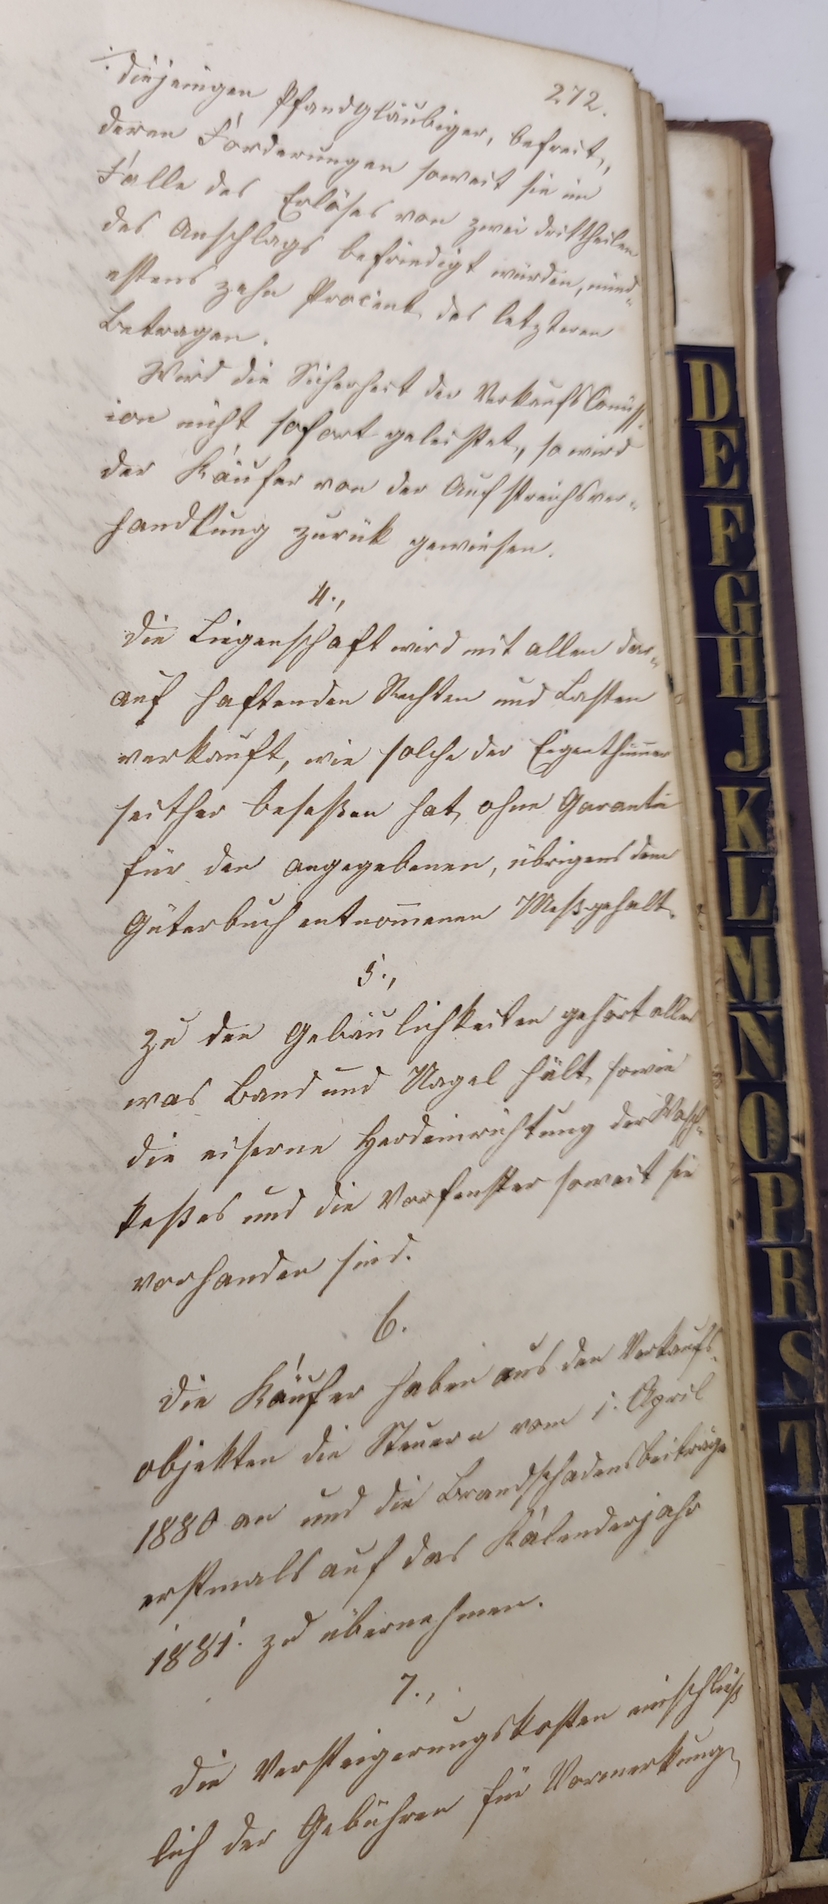 272.
diejenigen Pfandgläubiger, befreit,
deren Forderungen soweit sie im
Falle des Erlöses von zwei drittheilen
des Anschlags befriedigt würden, mind-
estens zehn Procent des letzteren
Betragen.
Wird die Sicherheit der Verkaufs Comiss-
ion nicht sofort geleistet, so wird
der Käufer von der Aufstreichsver-
handlung zurük gewiesen.
4.,
Die Liegenschaft wird mit allen dar-
auf haftenden Rechten und Lasten
verkauft, wie solche der Eigenthümer
seither beseßen hat, ohne Garantie
für den angegebenen, übrigens dem
Güterbuch entnom̅enen Meßgehalt.
5.,
Zu den Gebäulichkeiten gehört alles
was Band und Nagel hält, sowie
die eiserne Herdeinrichtung der Wasch-
keßel und die Vorfenster soweit sie
vorhanden sind.
6.
Die Käufer haben aus den Verkaufs-
objekten die Steuern vom 1. April
1880 an und die Brandschadensbeiträge
erstmals auf das Kalenderjahr
1881. zu übernehmen.
7.,
Die Versteigerungskosten einschließ
lich der Gebühren für Vormerkung
D
E
F
G
H
J
K
L
M
N
O
P
R
S
T
U
V
W
Z